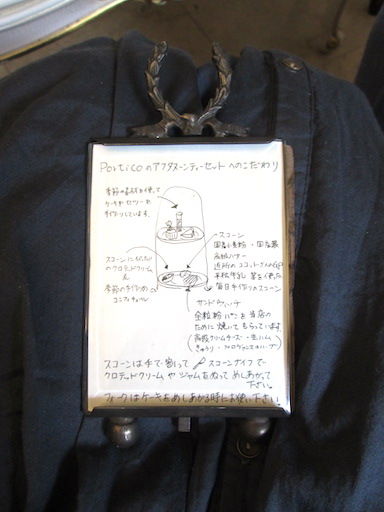 Porticoのアフタヌーンティーセットへのこだわり
季節の素材を使って
ケーキやゼリーを
手作りしています。
スコーン
国産小麦粉・国産
高級バター
近所の
牛乳 等を使った
毎日手作りのスコーン
スコーンに
のクロテッドクリーム
季節の手作り
コンフィチュール
サンドウィッチ
全粒粉パンを当店の
ために焼いてもらっています。
高級クリームチーズ・生ハム
きゅうり・
スコーンは手で割って スコーンナイフで
クロテッドクリームやジャムをぬって めしあがって
下さい。
フォークはケーキをめしあがる時にお使い下さい